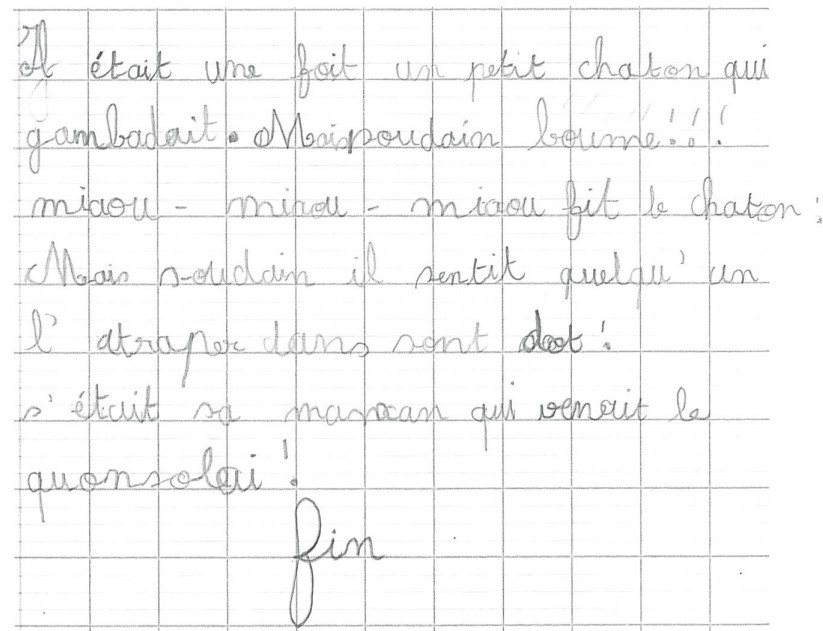 Il était une foit un petit chaton qui
gambadait. Maispoudain boume!!!
miaou - miaou - miaou fit le chaton:
Mais soudain il sentit quelqu'un
l'atraper dans sont dot!
s'était sa maman qui venait le
quonsolai!
fin